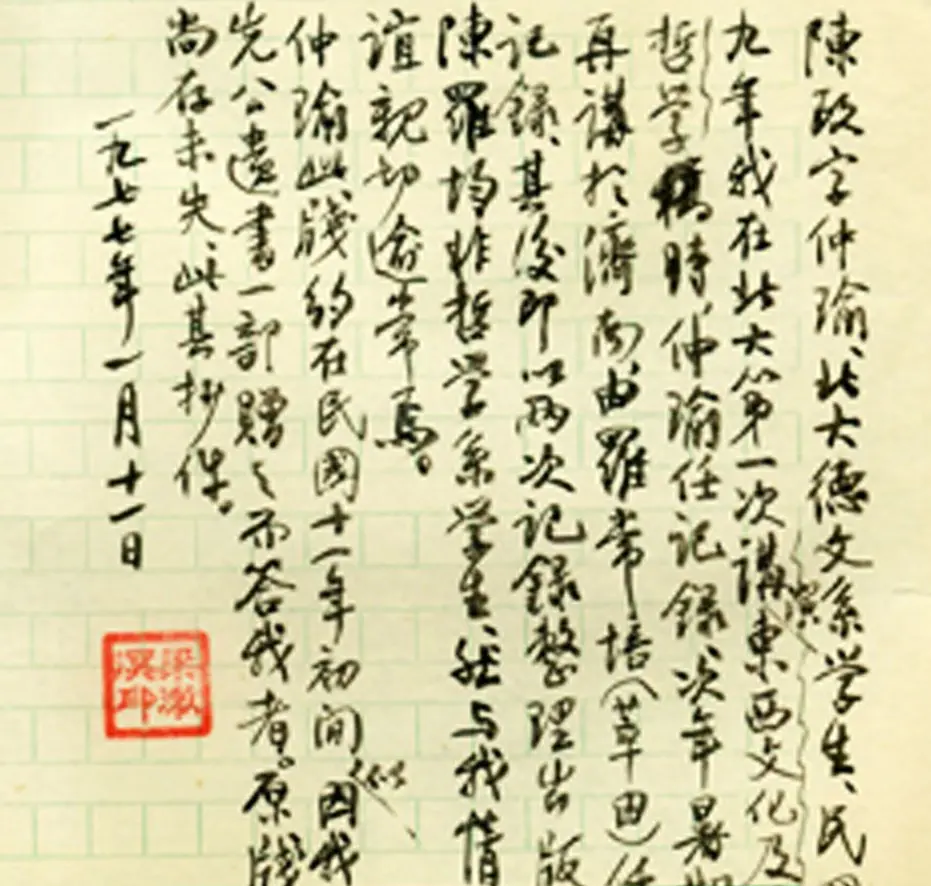 陳政字仲瑜、北大德文系學生、民國
九年我在北大第一次講演東西文化及
哲学稿時、仲瑜任记録、次年暑期
再講於濟南由羅常培(草田)任
记録、其後即以兩次记録整理出版
陳羅均非哲学系学生、然与我情
誼親切逾常焉。
仲瑜此牋約在民國十一年初间、似因我
先公遺書一部贈之而答我者。原牋
尚存未失、此其抄件。
一九七七年一月十一日
梁漱
溟印